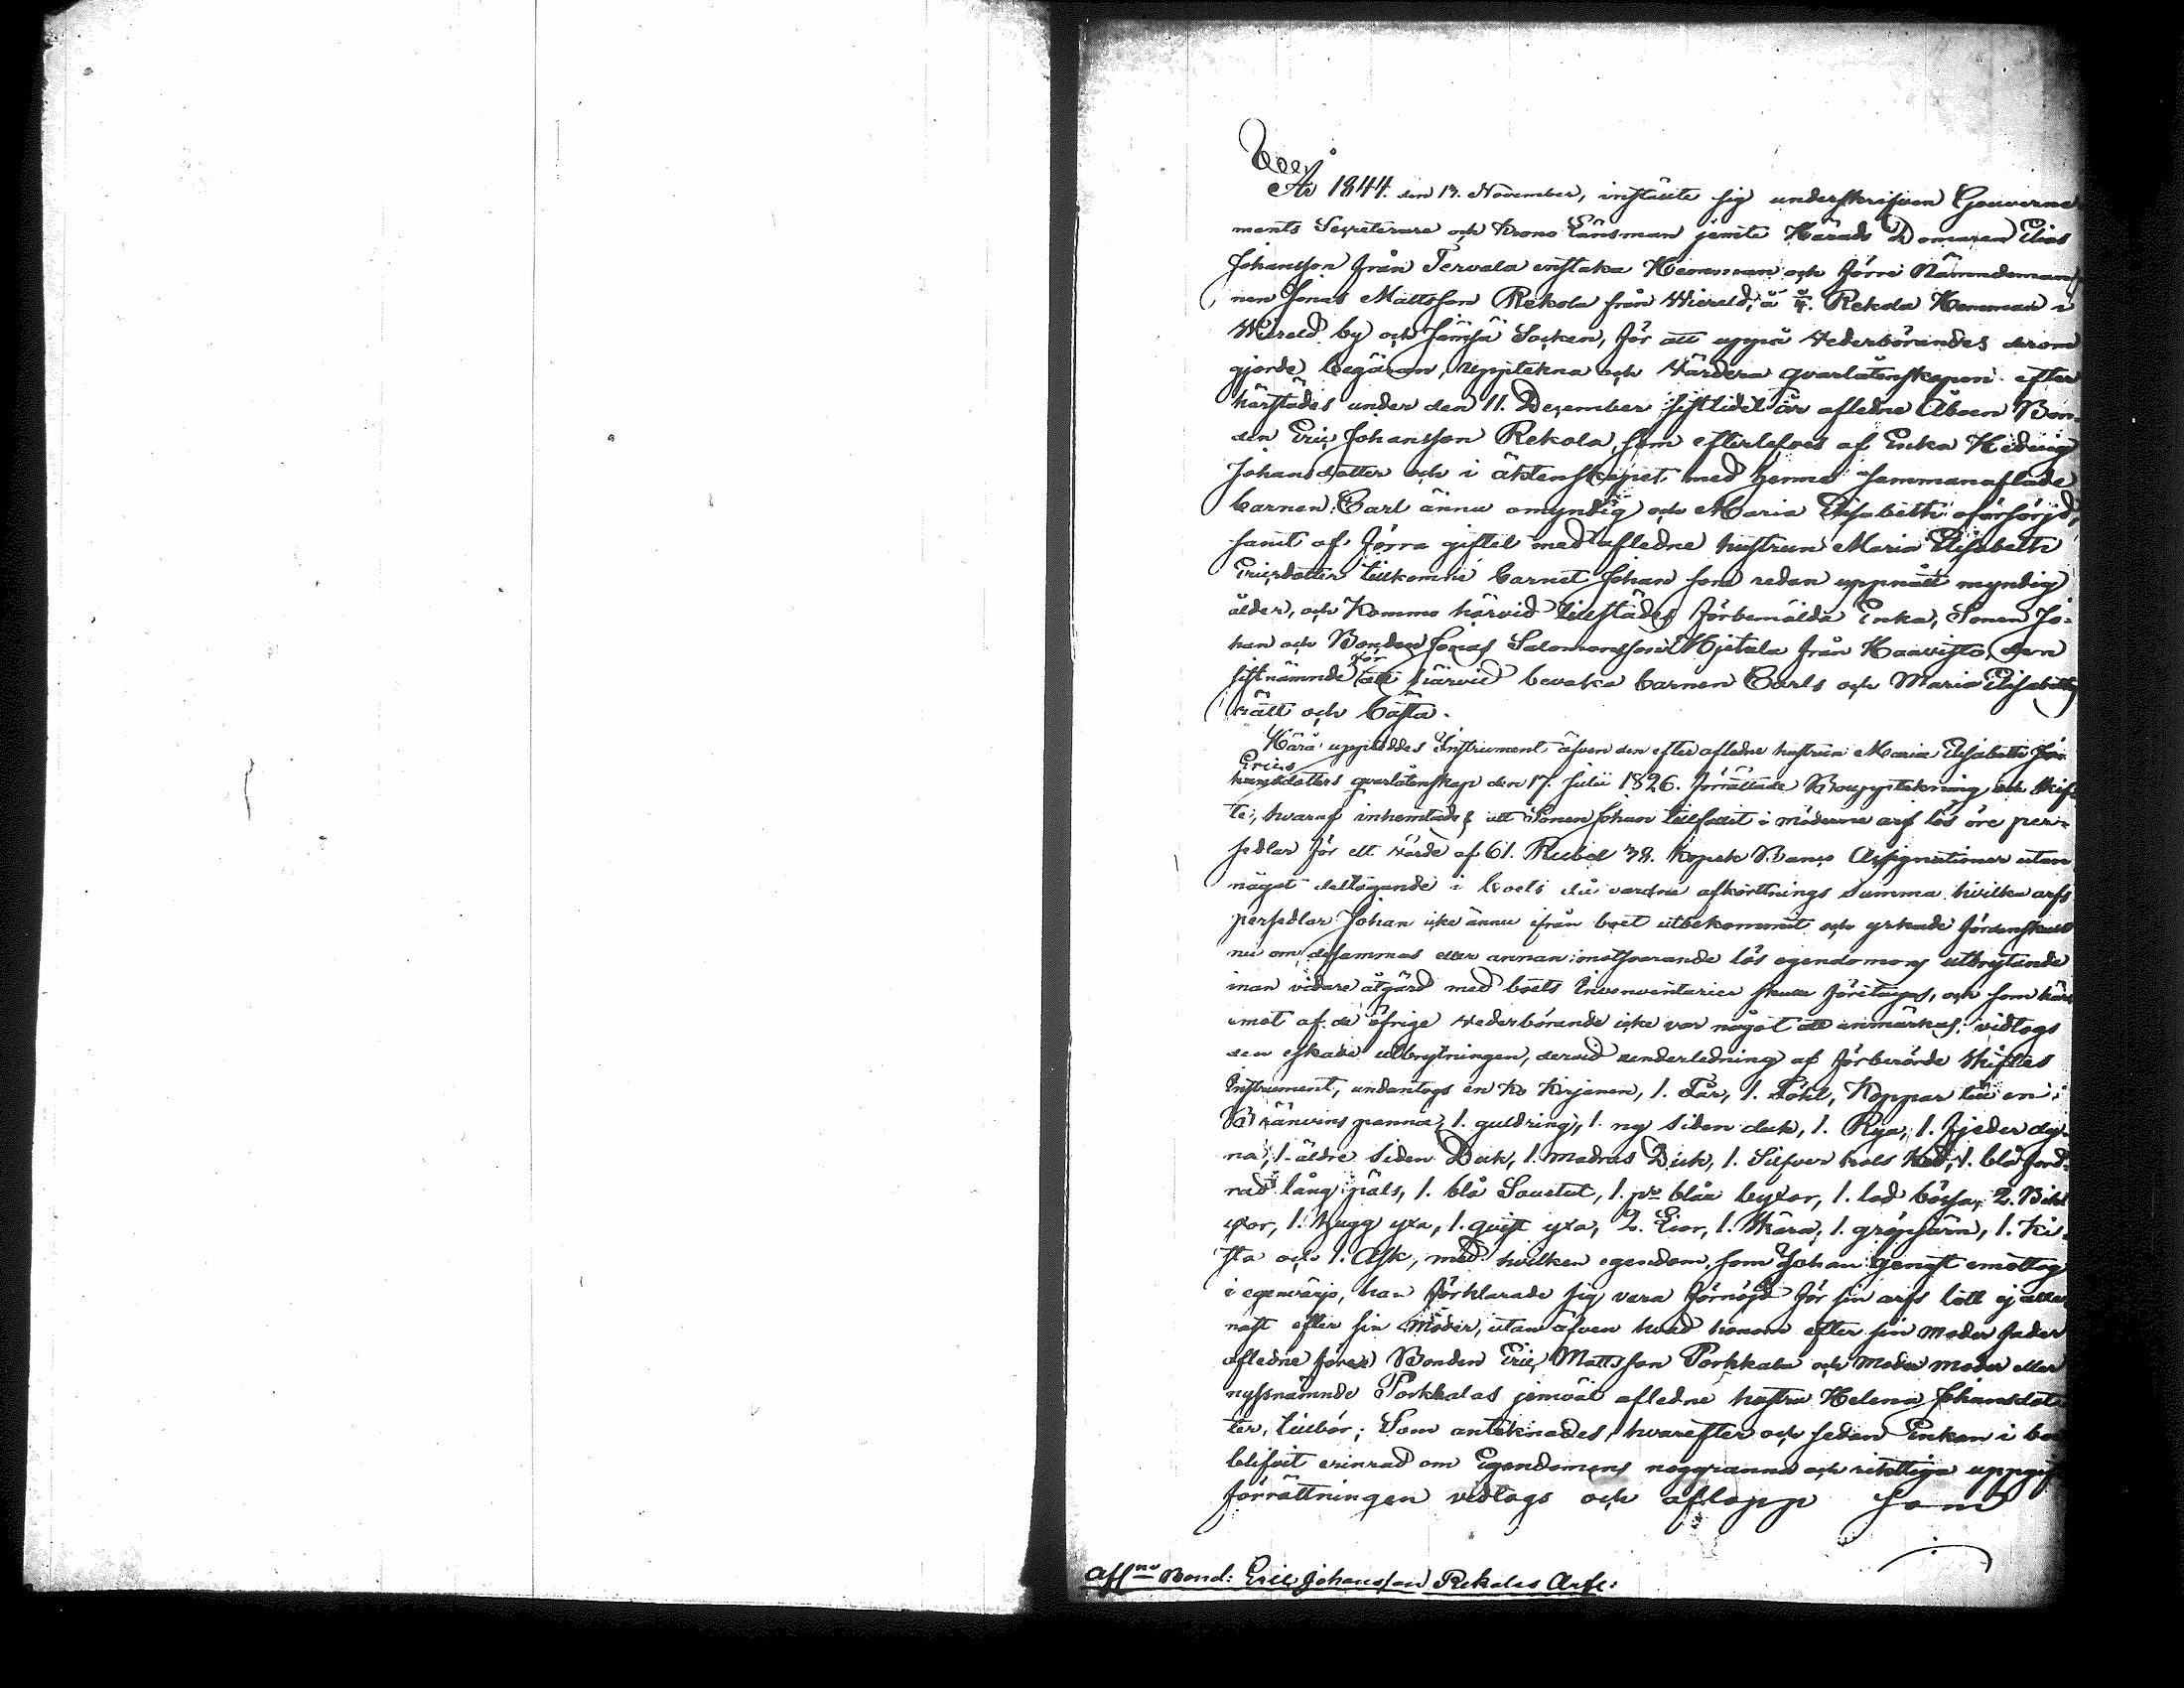 År 1844. den 13. November, instälte sig underskrifven Gouverne
ments Secreterare och Krono Länsman jemte Härads Domaren Elias
Johansson från Tervala enstaka Hemman och förre Nämndeman
nen Jonas Mattsson Rekola från Wierelä, å Rekola Hemman i
Wierelä by och Jämsä Socken, för att uppå vederbörandes derom
gjorde begäran, upptekna och värdera qvarlåtenskapen efter
härstädes under den 11. December sistlidet år afledne Åboen Bon-
den Eric Johansson Rekola, som efterlefves af Enka Hedvig
Johansdotter och i äktenskapet med henne sammanaflade
barnen: Carl ännu omyndig och Maria Elisabeth oförsörjd,
samt af förra giftet med afledne hustrun Maria Elisabeth
Ericsdotter tillkomne barnet Johan som redan uppnått myndig
ålder, och kommo härvid tillstädes förbemälda Enka, Sonen Jo-
han och Bonden Jonas Salomonsson Hjitala från Haavisto, den
sistnämnde för att härvid bevaka barnen Carls och Maria Elisabeths
rätt och bästa.
Härå uppteddes Instrument äfven den efter afledne hustrun Maria Elisabeth
Erics
dotters qvarlåtenskap den 17. Julii 1826. förrättade Bouppteckning och skif-
te, hvaraf inhemtades att Sonen Johan tillfallit i möderne arf lös öre per-
sedlar för ett värde af 61. Rubel 38. kopek Banco Assignationer utan
något deltagande i boets då vardne afkorttnings summa hvilka arfs
persedlar Johan icke ännu ifrån boet utbekommit och yrkade fördenskull
nu om desammas eller annan motsvarande lös egendoms utbrytande
inan vidare åtgärd med boets Invenventarier skulle företagas, och som här
emot af de öfrige vederbörande icke var något att anmärkas, vidtogs
den eskade utbrytningen, dervid under ledning af förberörde skiftes
Instrument, undantogs en ko Kirjanen, 1. Får, 1. Fohl, Koppar till en
Bränvins panna, 1. guldring, 1. ny Siden duk, 1. Rya, 1. Fjeder dy-
na, 1. äldre Siden Duk, 1. Madras Duk, 1. Silfver hals Ked, 1. blå ford-
rad lång päls, 1. blå Sourtut, 1. pr blåa byxor, 1. lod bössa, 2. Bihl
yxor, 1. hugg yxa, 1. qvist yxa, 2. Lior, 1. Skära, 1. gröpjärn, 1. Ki-
sta och 1. Ask, med hvilken egendom, som Johan genast emottog
i egenvärjo, han förklarade sig vara förnöjd för sin arfs lott ej alle
nast efter sin Moder, utan äfven hvad honom efter sin Moder fader
afledne förre Bonden Eric Mattsson Porkkala och Moder moder eller
nyssnämnde Porkkalas jemväl afledne hustru Helena Johansdot-
ter, tillhör; Som anteknades, hvarefter och sedan Enkan i bo
blifvit erinrad om Egendomens noggranna och riktiga uppgif
förrättningen vidtogs och aflopp som
Afl:ne Bond: Eric Johansson Rekolas Arfe: